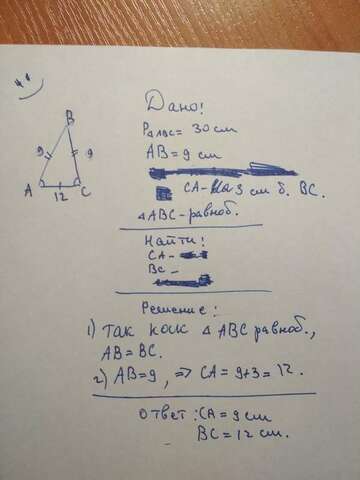 Дано!
P△ABC = 30 см
AB = 9 см
CA - на 3 см б. BC.
△ABC - равноб.
Найти!
CA -
BC -
Решение:
1) Так как △ ABC равноб.,
AB = BC.
2) AB = 9, => CA = 9+3 = 12.
Ответ: CA = 9 см
BC = 12 см.
B
9 9
A 12 C